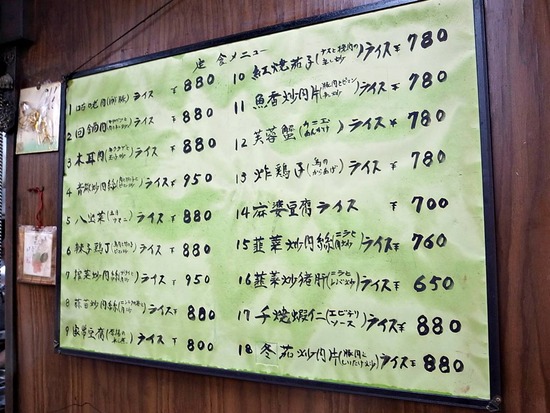 定食メニュー
1 咕咾肉(酢豚)ライス ¥880
2 回鍋肉 ライス ¥880
3 木耳肉 ライス ¥880
4 青椒炒肉絲 ライス ¥950
5 八宝菜 ライス ¥880
6 辣子鶏丁 ライス ¥880
7 搾菜炒肉絲 ライス ¥950
8 蒜苗炒肉絲 ライス ¥880
9 家常豆腐 ライス ¥800
10 紅焼茄子 ライス ¥780
11 魚香炒肉片 ライス ¥780
12 芙蓉蟹(カニ玉あんかけ)ライス ¥780
13 炸鶏子(鳥のからあげ)ライス ¥780
14 麻婆豆腐 ライス ¥700
15 韮菜炒肉絲 ライス ¥760
16 韮菜炒猪肝(ニラとレバー炒め)ライス ¥650
17 干焼蝦仁(エビチリソース)ライス ¥880
18 冬茄炒肉片(豚肉としいたけ炒め)ライス ¥880